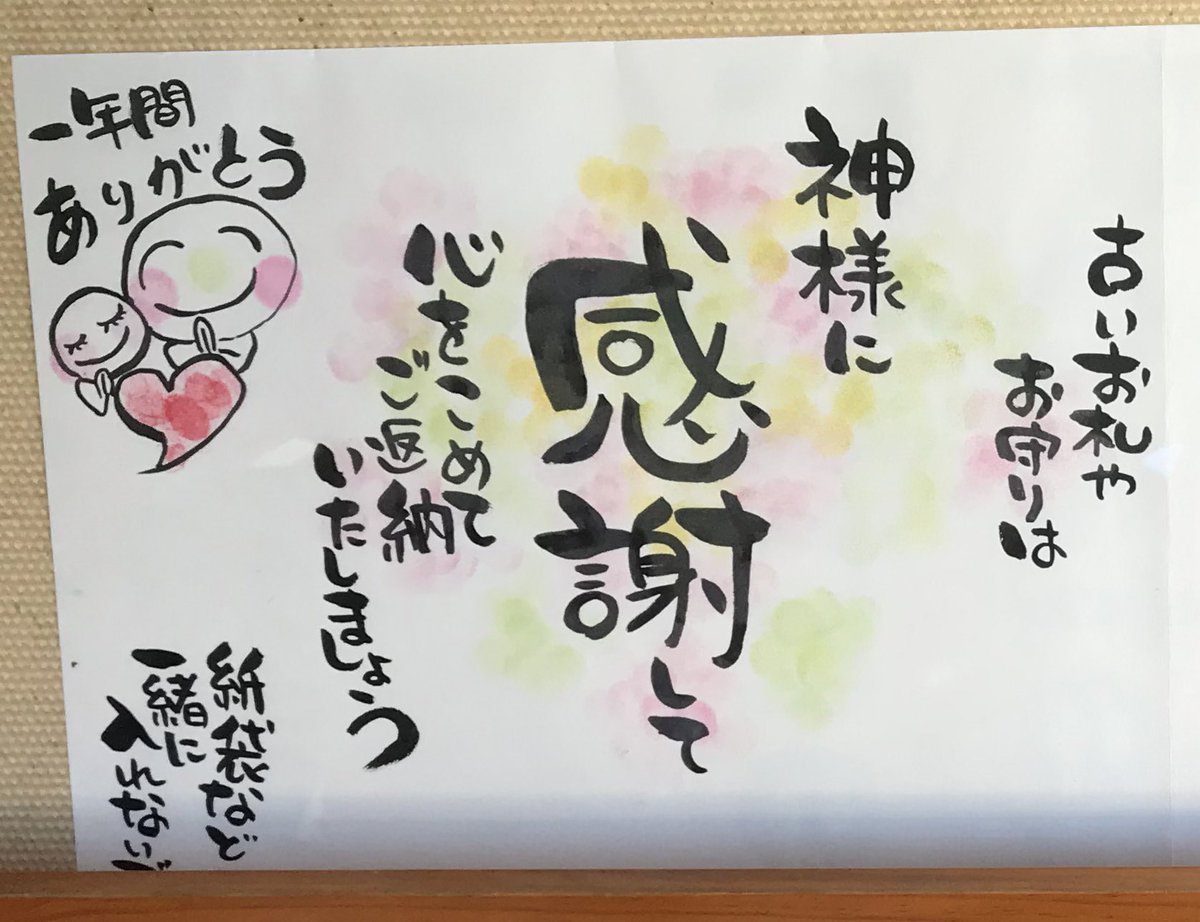 古いお札や
お守りは
神様に
感謝して
心をこめて
ご返納
いたしましょう
一年間
ありがとう
紙袋など
一緒に
入れないで